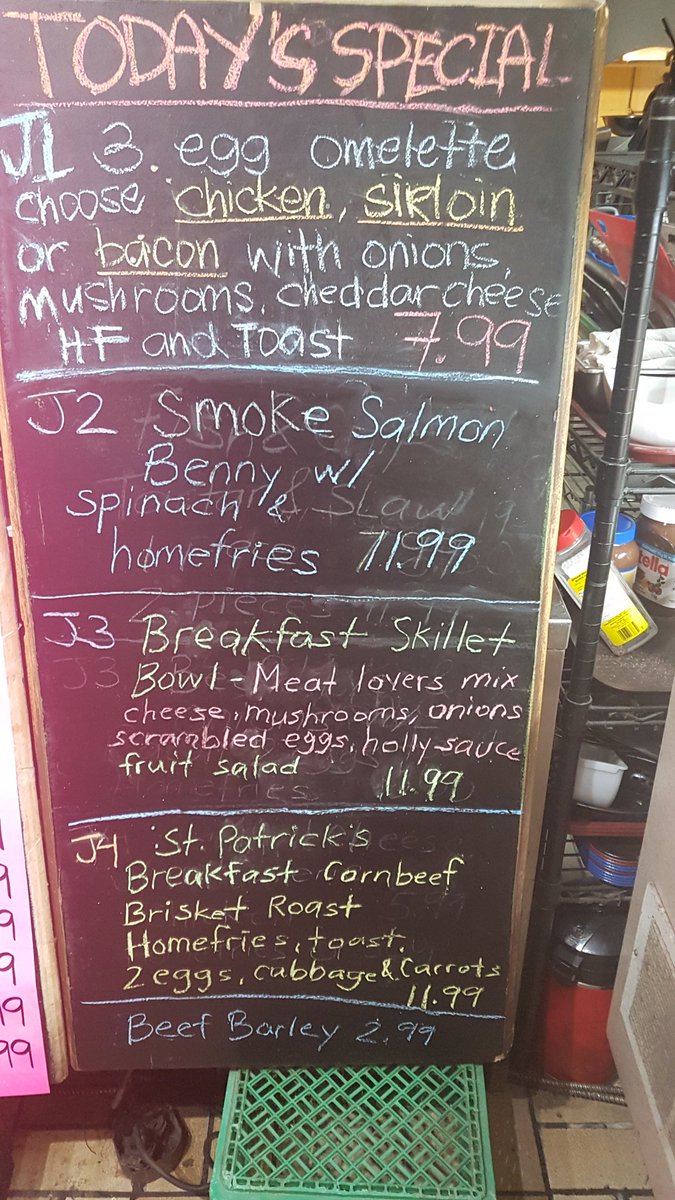 TODAY'S SPECIAL
J1 3. egg omelette
choose chicken, sirloin
or bacon with onions,
mushrooms, cheddar cheese
HF and Toast 7.99
J2 Smoke Salmon
Benny w/
spinach &
homefries 11.99
J3 Breakfast Skillet
Bowl - Meat lovers mix
cheese, mushrooms, onions
scrambled eggs, holly sauce
fruit salad 11.99
J4 St. Patrick's
Breakfast Cornbeef
Brisket Roast
Homefries, toast,
2 eggs, cabbage & Carrots
11.99
Beef Barley 2.99